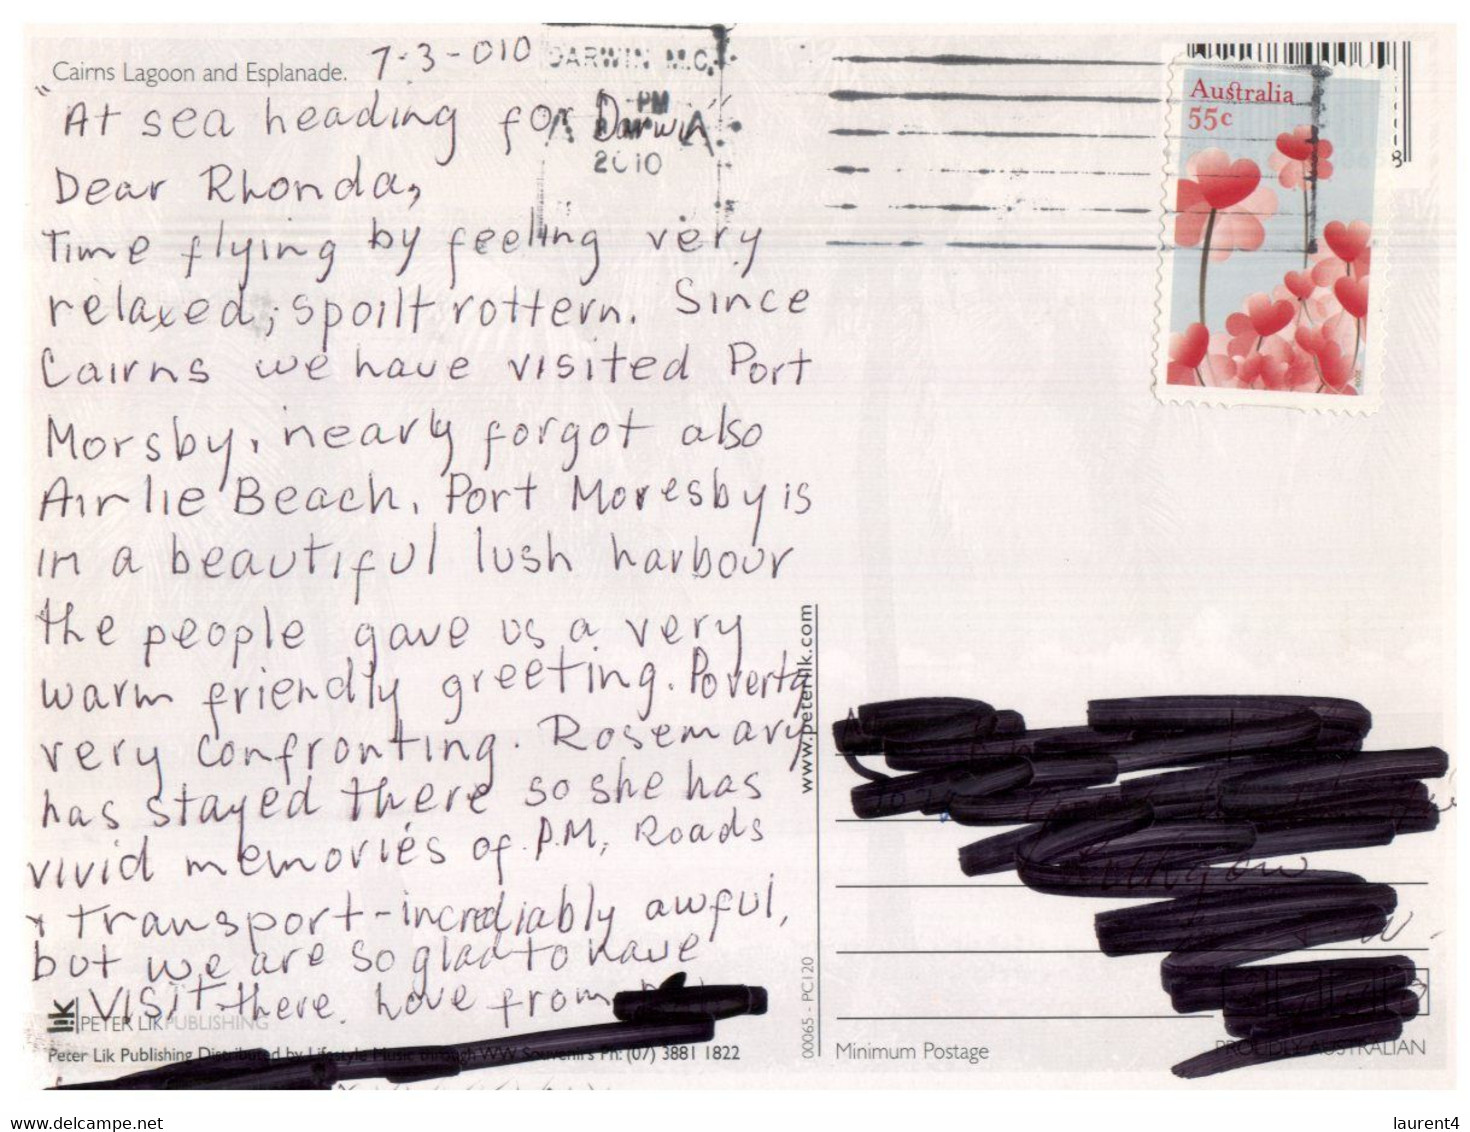 Cairns Lagoon and Esplanade. 7-3-010
DARWIN M.C.
PM
2010
Australia
55c
8
"At sea heading for Darwin"
Dear Rhonda,
Time flying by feeling very
relaxed, spoilt rottern. Since
Cairns we have visited Port
Morsby, nearly forgot also
Airlie Beach. Port Moresby is
in a beautiful lush harbour
the people gave us a very
warm friendly greeting. Poverty
very confronting. Rosemary
has stayed there so she has
vivid memories of P.M, Roads
+ transport-incrediably awful,
but we are so glad to have
visit there. Love from
lik PETER LIK PUBLISHING
Peter Lik Publishing Distributed by Lifestyle Music through WW Souvenirs Ph: (07) 3881 1822
www.peterlik.com
00065 - PC120
Minimum Postage
PROUDLY AUSTRALIAN
delcampe.net
laurent4